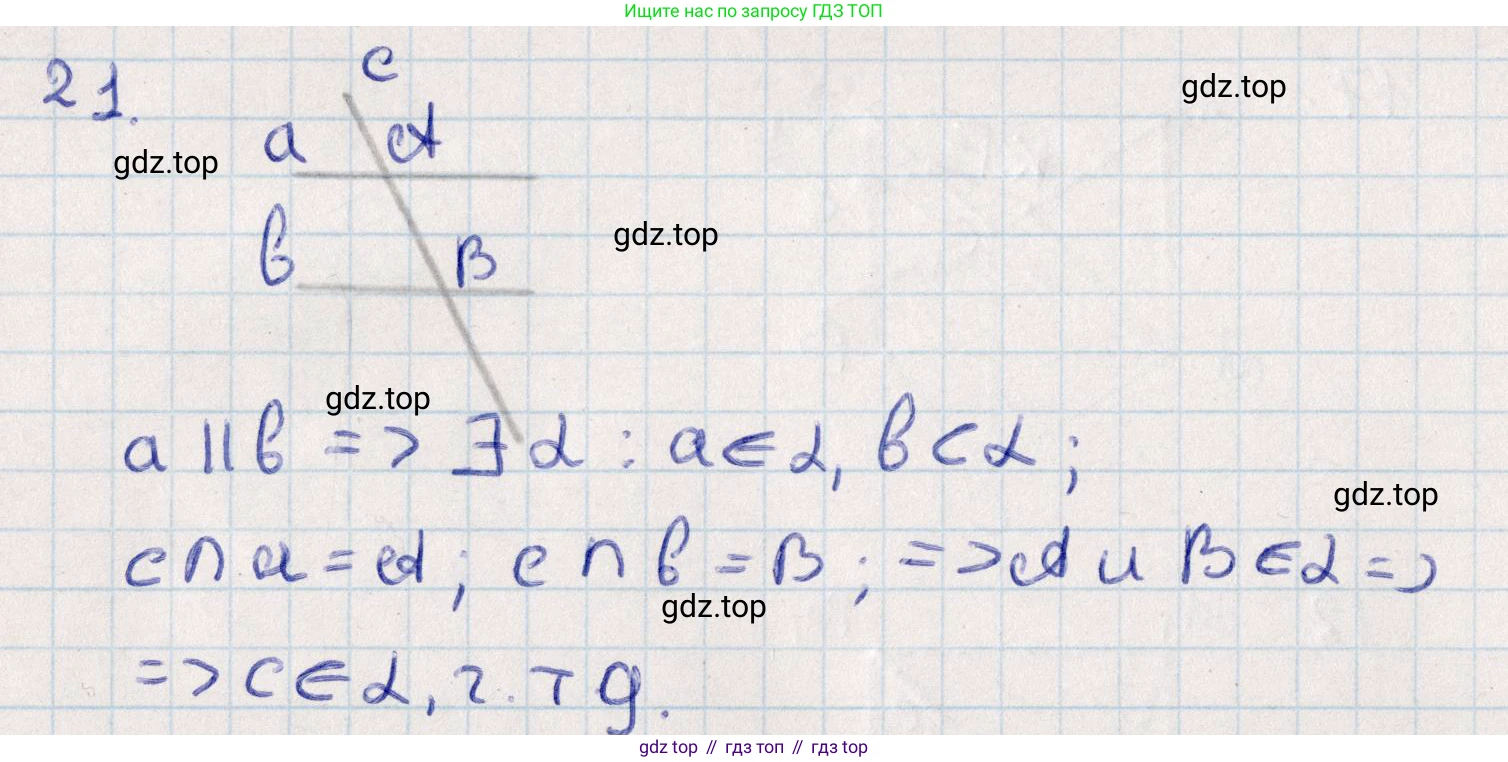 Ищите нас по запросу ГДЗ ТОП
21.
c
gdz.top
a A
gdz.top
gdz.top
b B
gdz.top
a || b => ∃ α : a ∈ α, b ⊂ α ;
gdz.top
c ∩ a = A ; c ∩ b = B ; => A и B ∈ α =>
gdz.top
=> c ∈ α, ч. т д.
gdz top // гдз топ // гдз top